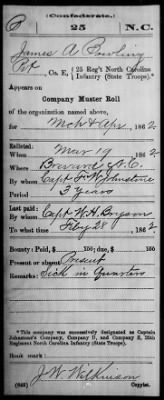 (Confederate.)
25 N.C.
James A.
Pvt, Co. E, 25 Reg't North Carolina
Infantry (State Troops).*
Appears on
Company Muster Roll
of the organization named above,
for Mch & Apr, 1862.
Enlisted:
When Mar 19, 1862.
Where N.C.
By whom Capt Johnstone
Period 3 years
Last paid:
By whom Capt W.H. Bryson
To what time Feby 28, 1862.
Bounty: Paid, $ 100; due $ 100
Present or absent Present
Remarks: Sick in Quarters
*This company was successively designated as Captain
Johnstone's Company, Company D, and Company E, 25th
Regiment North Carolina Infantry (State Troops).
Book mark:
J. W. Wilkinson
(642) Copyist.